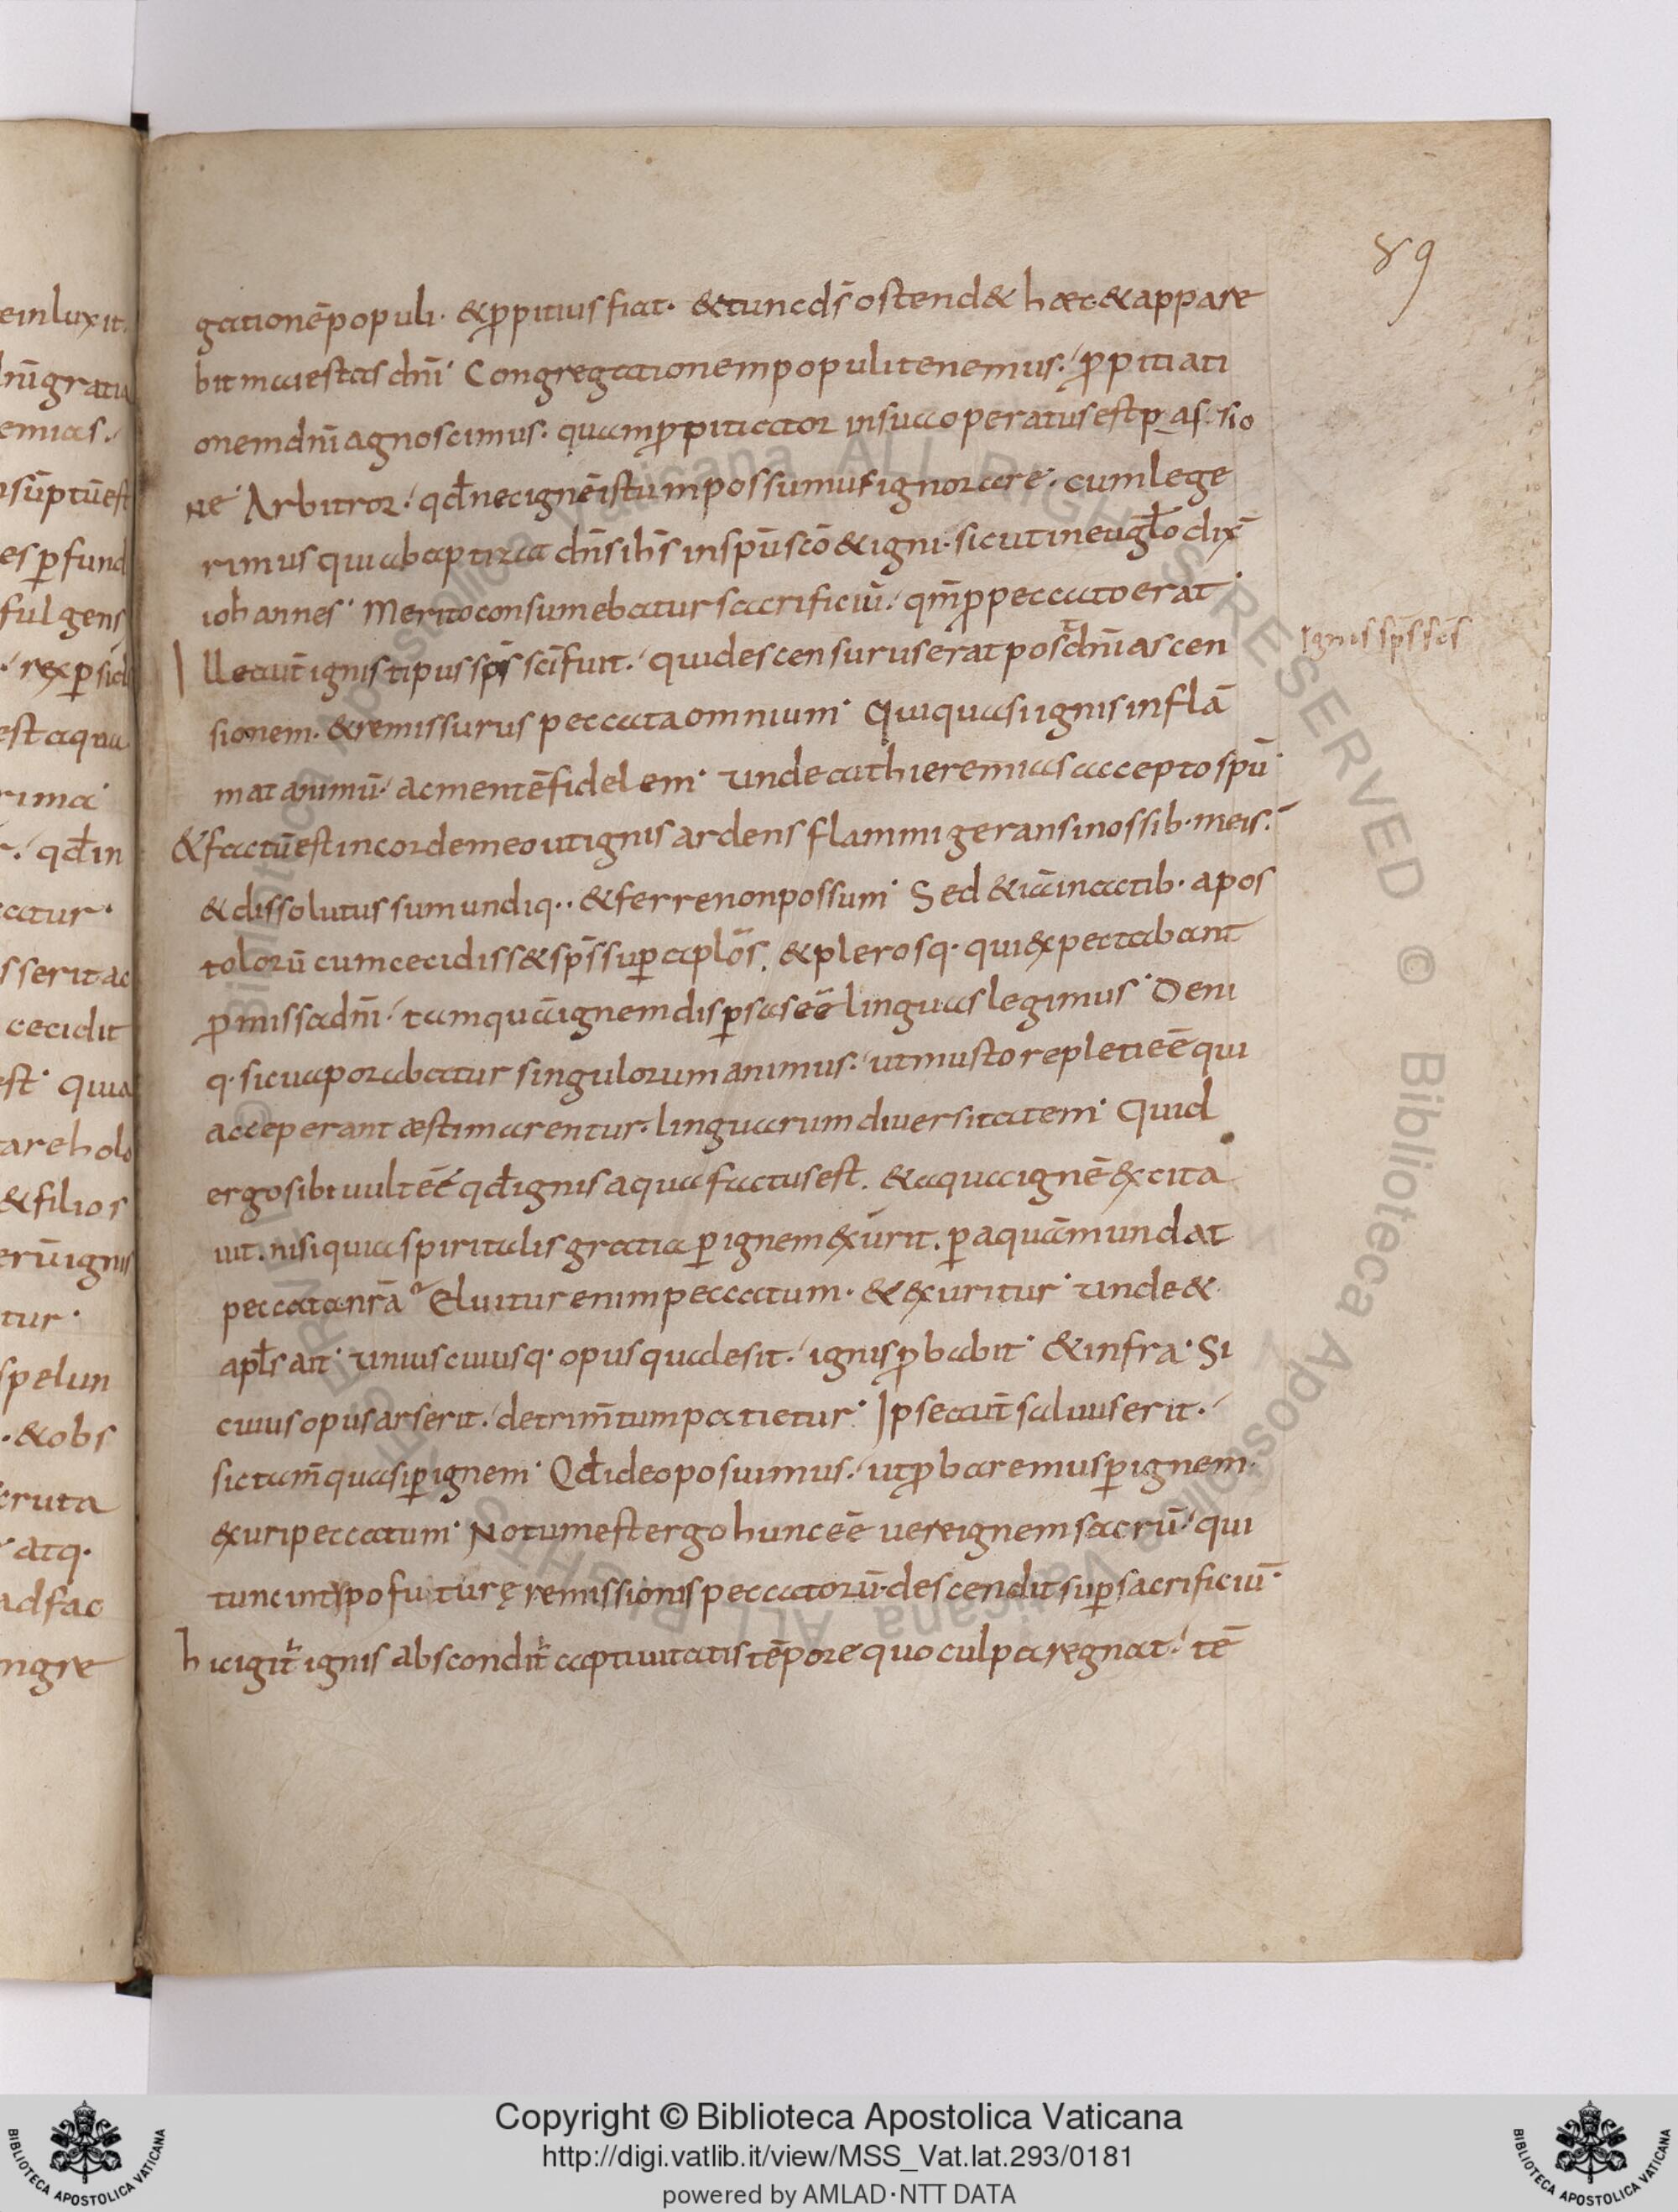 89
gationē populi · & ꝓpitius fiat · & tunc ds̄ ostend& hæc · & appare
bit maiestas dn̄i · Congregationem populi tenemus · ꝓpitiati
onem dn̄i agnoscimus · quam ꝓpitiator in sua operatus est pas sio
ne · Arbitror · qđ nec ignē istum possumus ignorare · cum lege
rimus quia baptizat dn̄s ih̄s in spū sc̄o & igni · sicut in euḡlo dix̄
iohannes · Merito consumebatur sacrificiū · qm̄ ꝓ peccato erat ·
Ille aut̄ ignis tipus sp̄s sc̄i fuit · qui descensurus erat post dn̄i ascen
sionem · & remissurus peccata omnium · Qui quasi ignis inflā
mat animū · ac mentē fidelem · unde ait hieremias accepto spū ·
& factū est in corde meo ut ignis ardens flammigerans in ossib · meis ·
& dissolutus sum undiq · · & ferre non possum · Sed & iā in actib · apos
tolorū cum cecidiss& sp̄s sup̱ aplōs · & plerosq · qui expectabant
ꝓmissa dn̄i · tamquā ignem disp̱sas eē̄ linguas legimus · Deni
q · sic uaporabatur singulorum animus · ut musto repleti eē̄ qui
acceperant æstimarentur · linguarum diuersitatem · Quid
ergo sibi uult eē̄ qđ ignis aqua factus est · & aqua ignē excita
uit · nisi quia spiritalis gratia p̱ ignem exurit · p̱ aquā mundat
peccata nr̄a · Eluitur enim peccatum · & exuritur · unde &
apl̄s ait · uniuscuiusq · opus quale sit · ignis ꝓbabit · & infra · Si
cuius opus arserit · detrim̄tum patietur · Ipse aut̄ saluus erit ·
sic tam̄ quasi p̱ ignem · Qđ ideo posuimus · ut ꝓbaremus p̱ ignem
exuri peccatum · Notum est ergo hunc eē̄ uere ignem sacrū · qui
tunc in typo futurę remissionis peccatorū descendit sup̱ sacrificiū ·
hic igit̄ ignis abscondit̄ captiuitatis tēpore quo culpa regnat · tē
Ignis sp̄s sc̄s
Copyright © Biblioteca Apostolica Vaticana
http://digi.vatlib.it/view/MSS_Vat.lat.293/0181
powered by AMLAD·NTT DATA
BIBLIOTECA APOSTOLICA VATICANA
BIBLIOTECA APOSTOLICA VATICANA